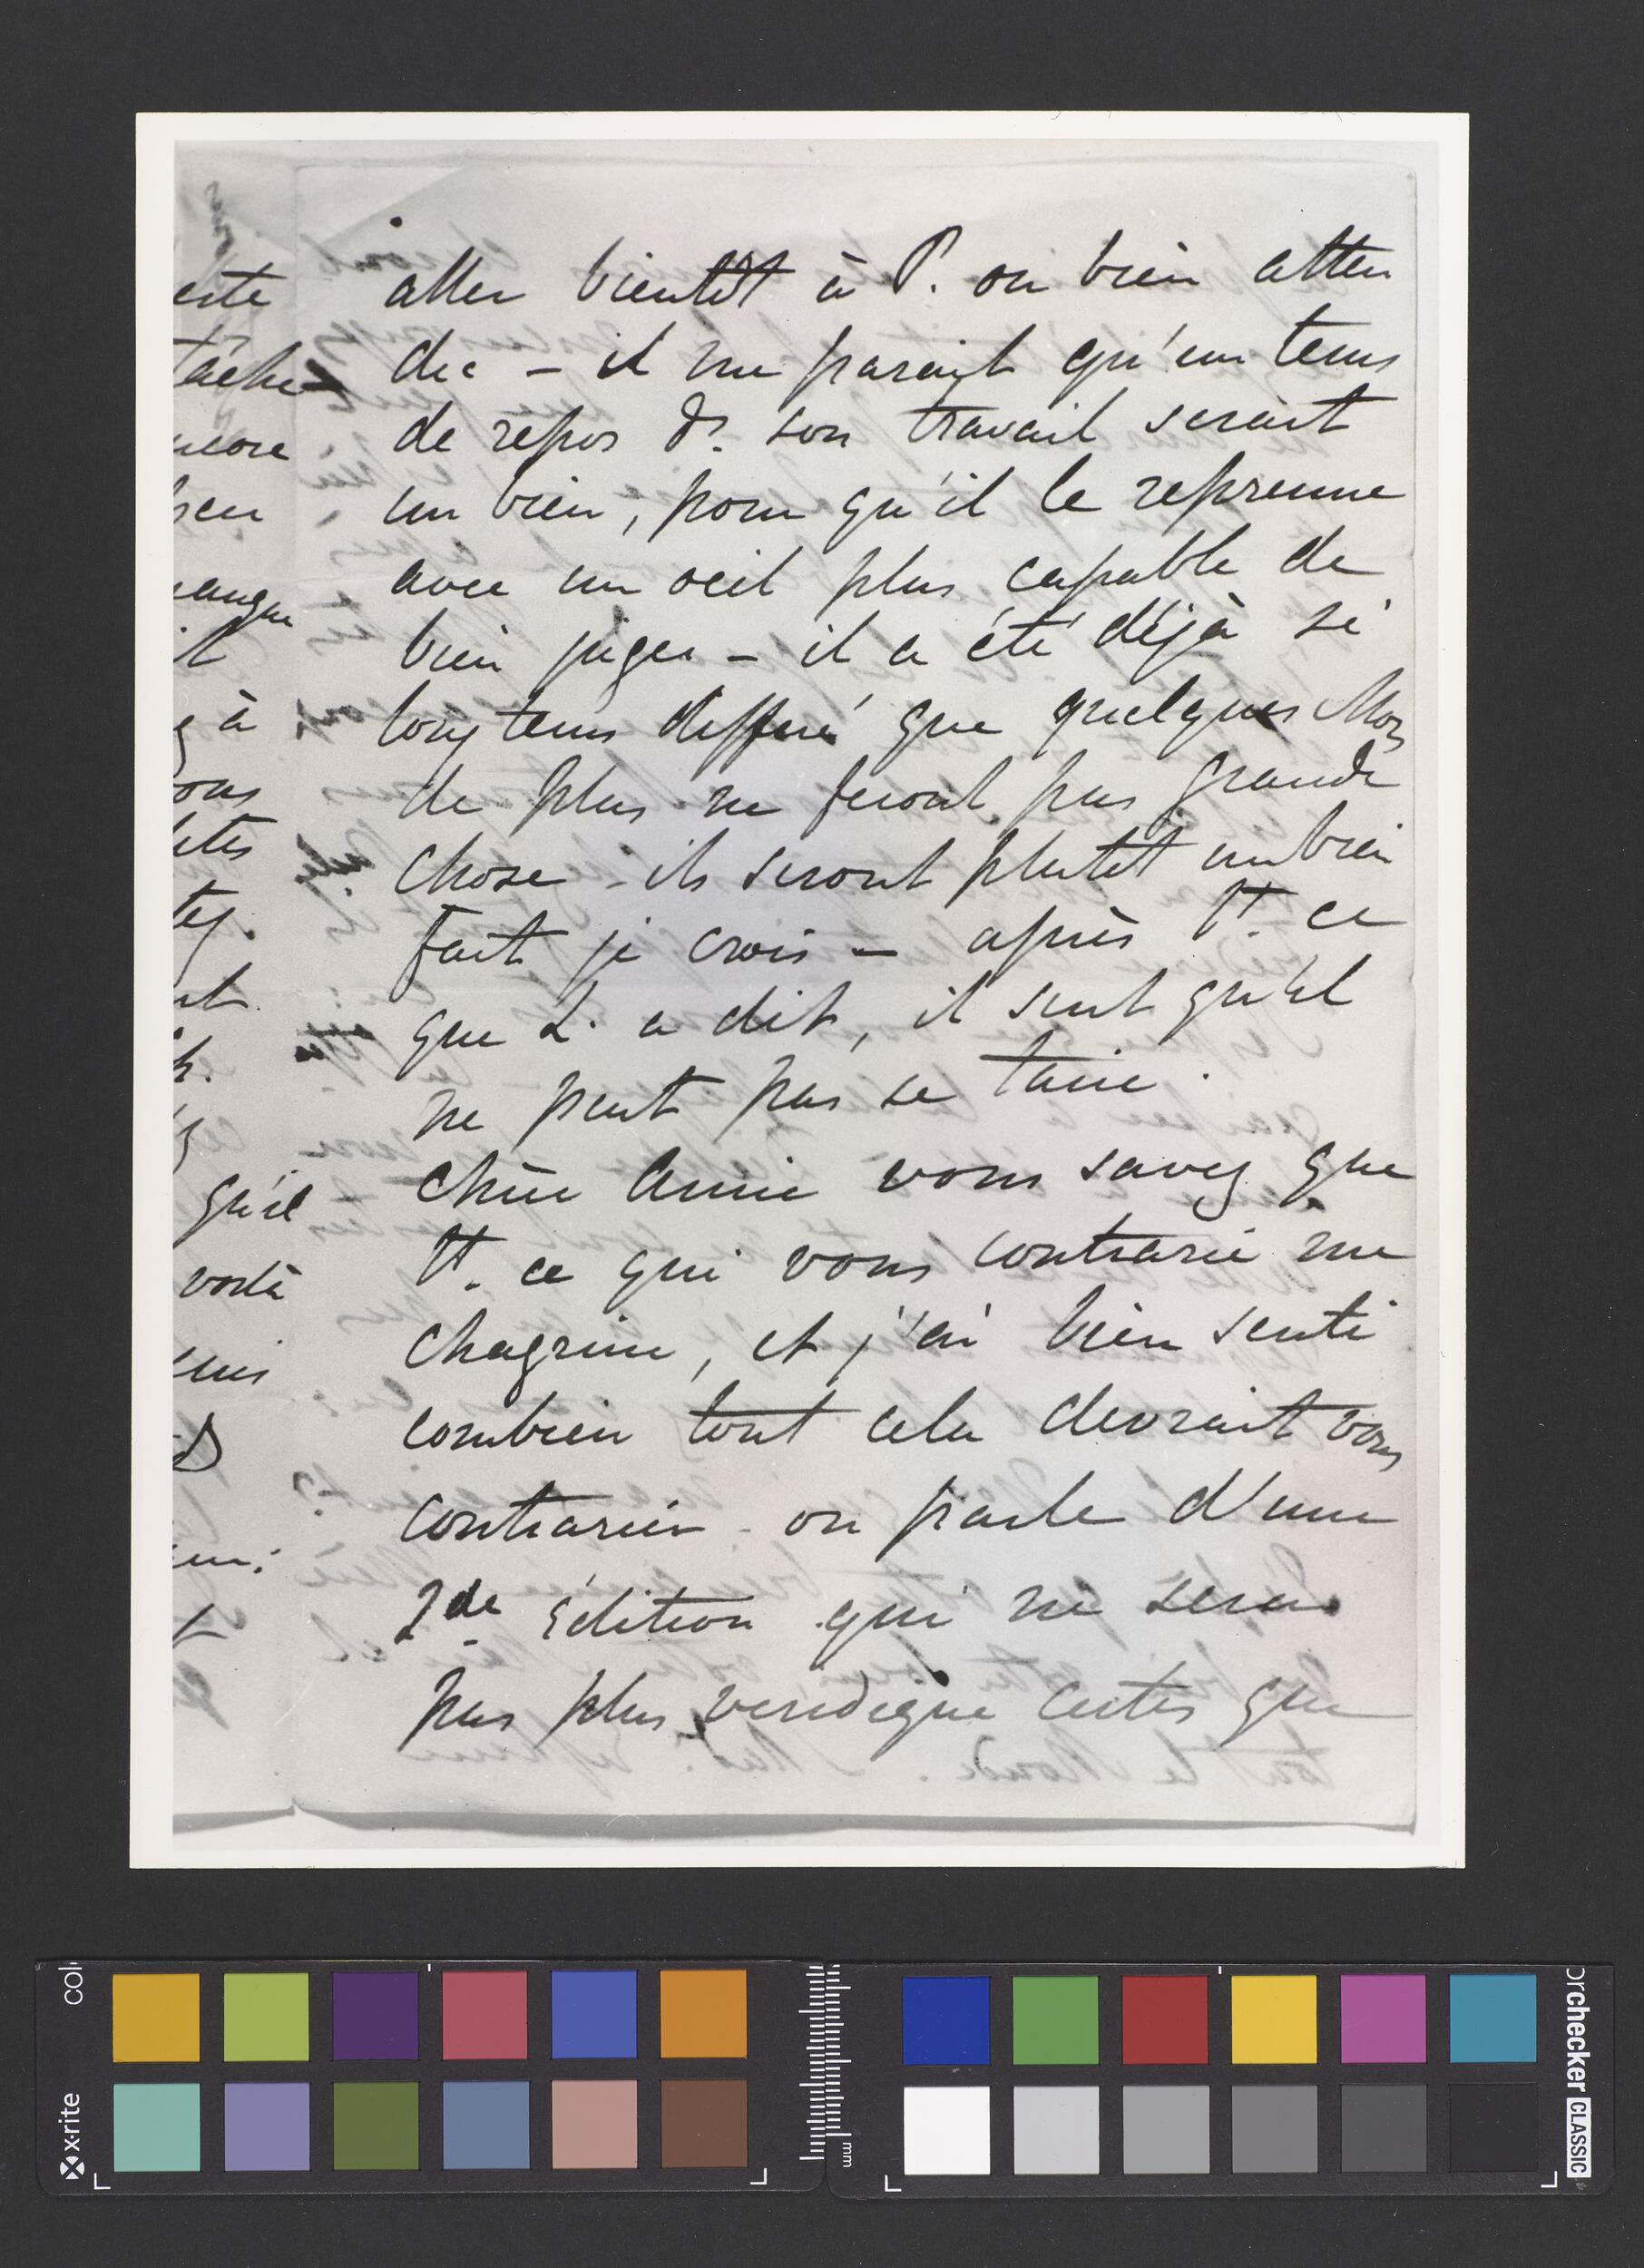 este
tâche
ncore
peu
it
g à
ous
ntes
tez.
nt.
qu'il
voilà
uis
aller bientôt à P. ou bien atten
dre – il me parait qu'un tems
de repos ds. son travail serait
un bien, pour qu'il le reprenne
avec un oeil plus capable de
bien juger – il a été déjà si
longtems différé que quelques Mois
de plus ne feront pas grande
chose – ils seront plutôt un bien
fait je crois – après tt. ce
que L. a dit, il sent qu'il
ne peut pas se taire.
Chère Amie vous savez que
tt. ce qui vous contrarie me
chagrine, et j'ai bien senti
combien tout cela devrait vous
contrarier - on parle d'une
2de Edition qui ne sera
pas plus veridique certes que
x-rite
colorchecker CLASSIC
mm